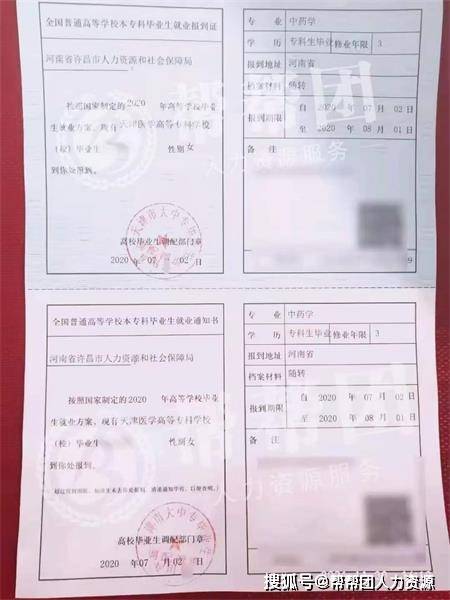 全国普通高等学校本专科毕业生就业报到证
河南省许昌市人力资源和社会保障局
按照国家制定的2020 年高等学校毕业
生就业方案,现有天津医学高等专科学校
(校)毕业生 性别女
到你处报到。
天津市大中专毕
高校毕业生调配部门章
2020 年 07 月 02 日
专 业 中药学
学 历 专科生毕业 修业年限 3
报到地址 河南省
档案材料 随转
报到期限
自 2020 年 07 月 02 日
至 2020 年 08 月 01 日
备 注
帮帮团
人力资源服务
9
全国普通高等学校本专科毕业生就业通知书
河南省许昌市人力资源和社会保障局
按照国家制定的2020 年高等学校毕业
生就业方案,现有天津医学高等专科学校
(校)毕业生 性别女
到你处报到。
高校毕业生调配部门章
2020 年 07 月 02 日
专 业 中药学
学 历 专科生毕业 修业年限 3
报到地址 河南省
档案材料 随转
报到期限
自 2020 年 07 月 02 日
至 2020 年 08 月 01 日
备 注
帮帮团
人力资源服务
搜狐号@帮帮团人力资源